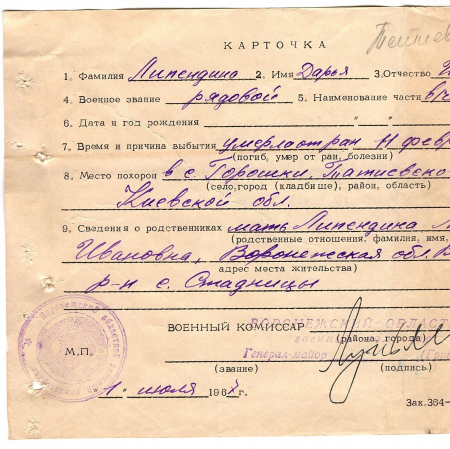 КАРТОЧКА
1. Фамилия Липендина 2. Имя Дарья 3. Отчество
4. Военное звание рядовой 5. Наименование части в/ч
6. Дата и год рождения " "
7. Время и причина выбытия умерла от ран 11 февр
(погиб, умер от ран, болезни)
8. Место похорон в с. Горошки, Татиевско
(село, город (кладбище), район, область)
Киевской обл.
9. Сведения о родственниках мать Липендина
(родственные отношения, фамилия, имя,
Ивановна, Воронежская обл.
адрес места жительства)
р-н с. Стадницы
ВОЕННЫЙ КОМИССАР ВОРОНЕЖСКОЙ ОБЛАСТ
(района, города)
Генерал-майор
М.П.
(звание) (подпись)
1 июля 196 г.
Зак. 364-